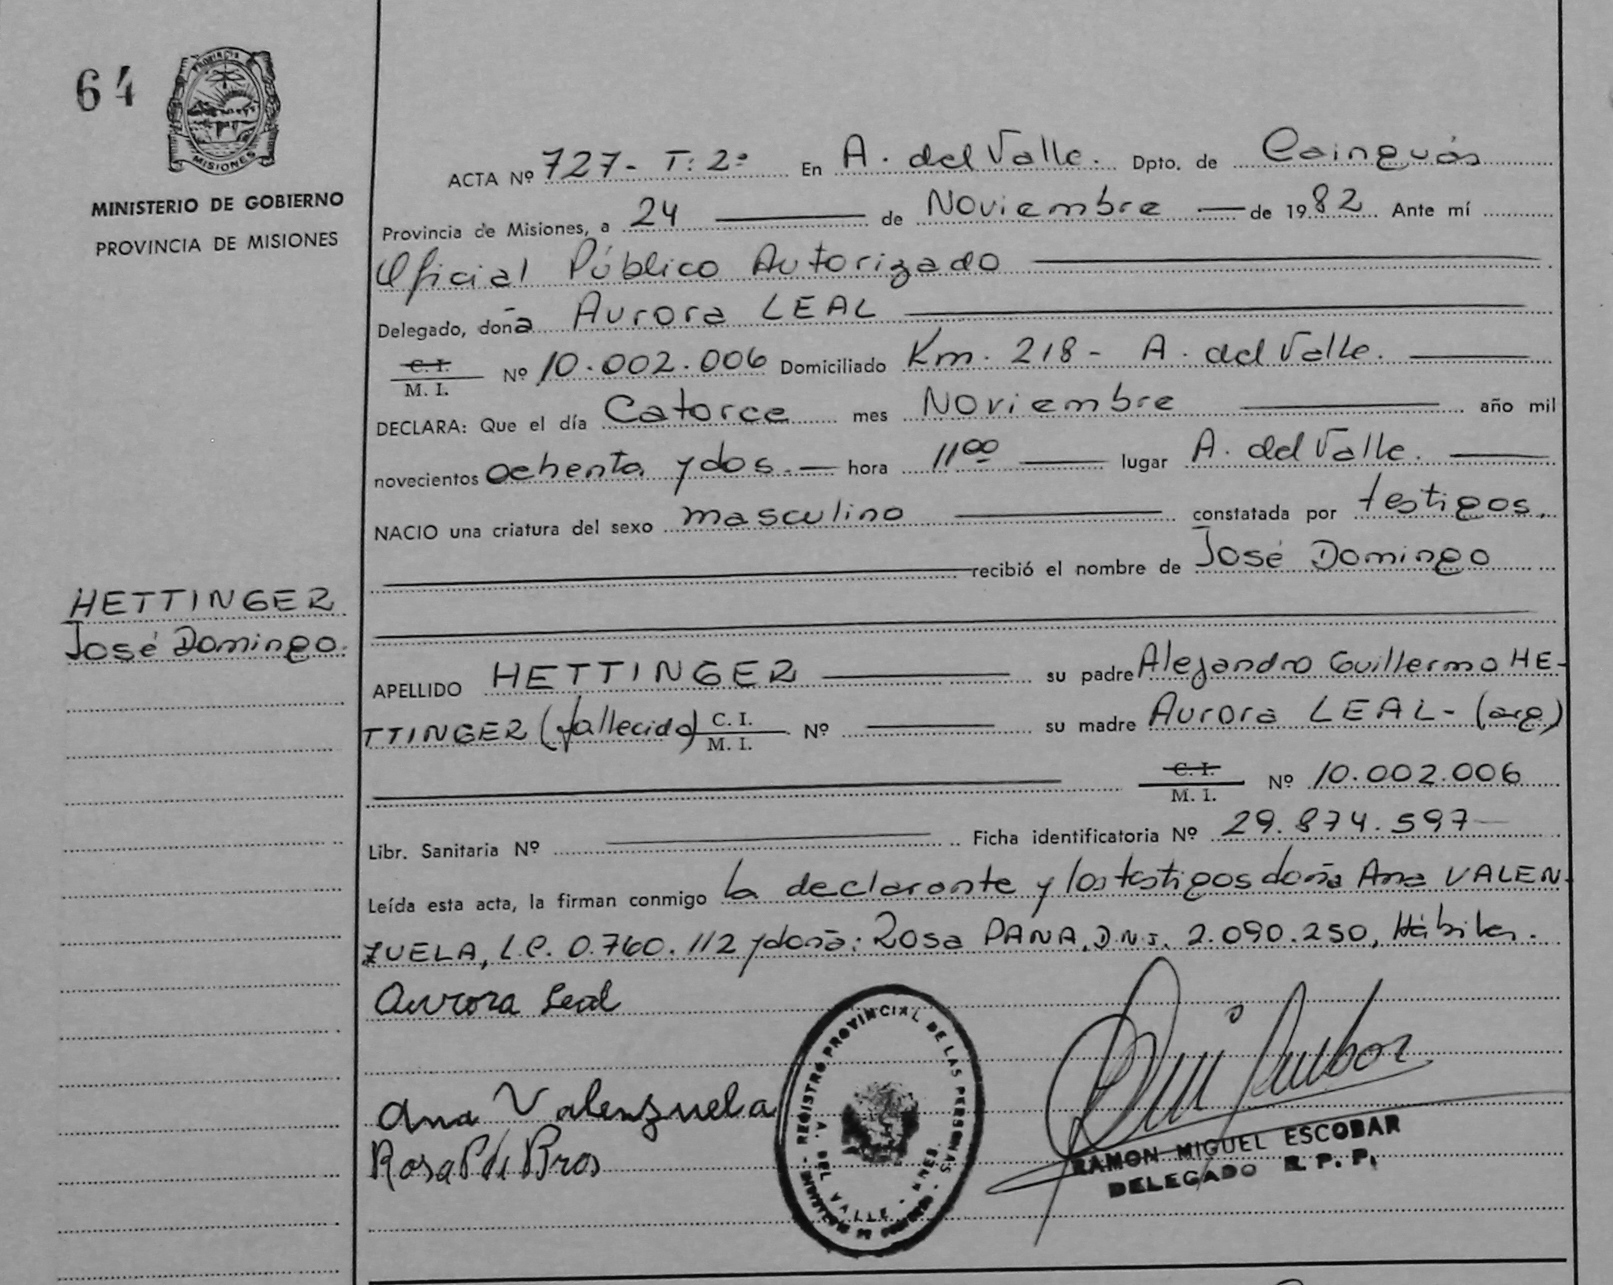 64
PROVINCIA
MISIONES
MINISTERIO DE GOBIERNO
PROVINCIA DE MISIONES
ACTA Nº 727- T: 2º En A. del Valle. Dpto. de Cainguás
Provincia de Misiones, a 24 de Noviembre de 1982 Ante mí
Oficial Público Autorizado
Delegado, doña Aurora LEAL
C. I.
M. I. Nº 10.002.006 Domiciliado Km. 218- A. del Valle.
DECLARA: Que el día Catorce mes Noviembre año mil
novecientos ochenta y dos.- hora 11 00 lugar A. del Valle.
NACIO una criatura del sexo masculino constatada por testigos.
recibió el nombre de José Domingo
HETTINGER
José Domingo.
APELLIDO HETTINGER su padre Alejandro Guillermo HE-
TTINGER (fallecido) C. I.
M. I. Nº su madre Aurora LEAL- (arg)
C. I.
M. I. Nº 10.002.006
Libr. Sanitaria Nº Ficha identificatoria Nº 29.874.597
Leída esta acta, la firman conmigo la declarante y los testigos doña Ana VALEN-
ZUELA, L.C. 0.760.112 y doña: Rosa PANA, D.N.I. 2.090.250, Hábiles.
Aurora Leal
Ana Valenzuela
Rosa P de Bros
REGISTRO PROVINCIAL DE LAS PERSONAS
A. DEL VALLE
RAMON MIGUEL ESCOBAR
DELEGADO R. P. P.